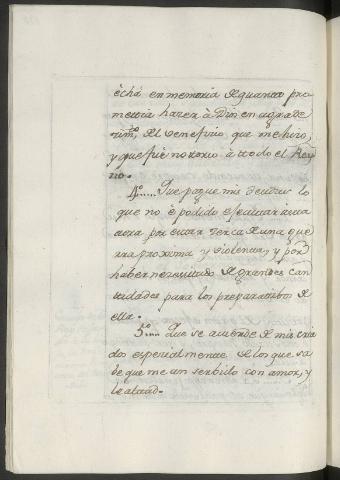 èchâ en memoria de quanto pro
mettia hazer à Dios en agrade
zim.to del Beneficio que me hizo,
y que fue notorio à ttodo el Rey
no.
4.o.... Que pague mis deudas lo
que no è podido efectuar hasta
aora por estar zerca de una gue
rra proxima, y violenta, y por
haber nezesitado de grandes can
tidades para los preparatibos de
ella.
5.o.... Que se acuerde de mis cria
dos espezialmente de los que sa
be que me an serbido con amor, y
lealtad.